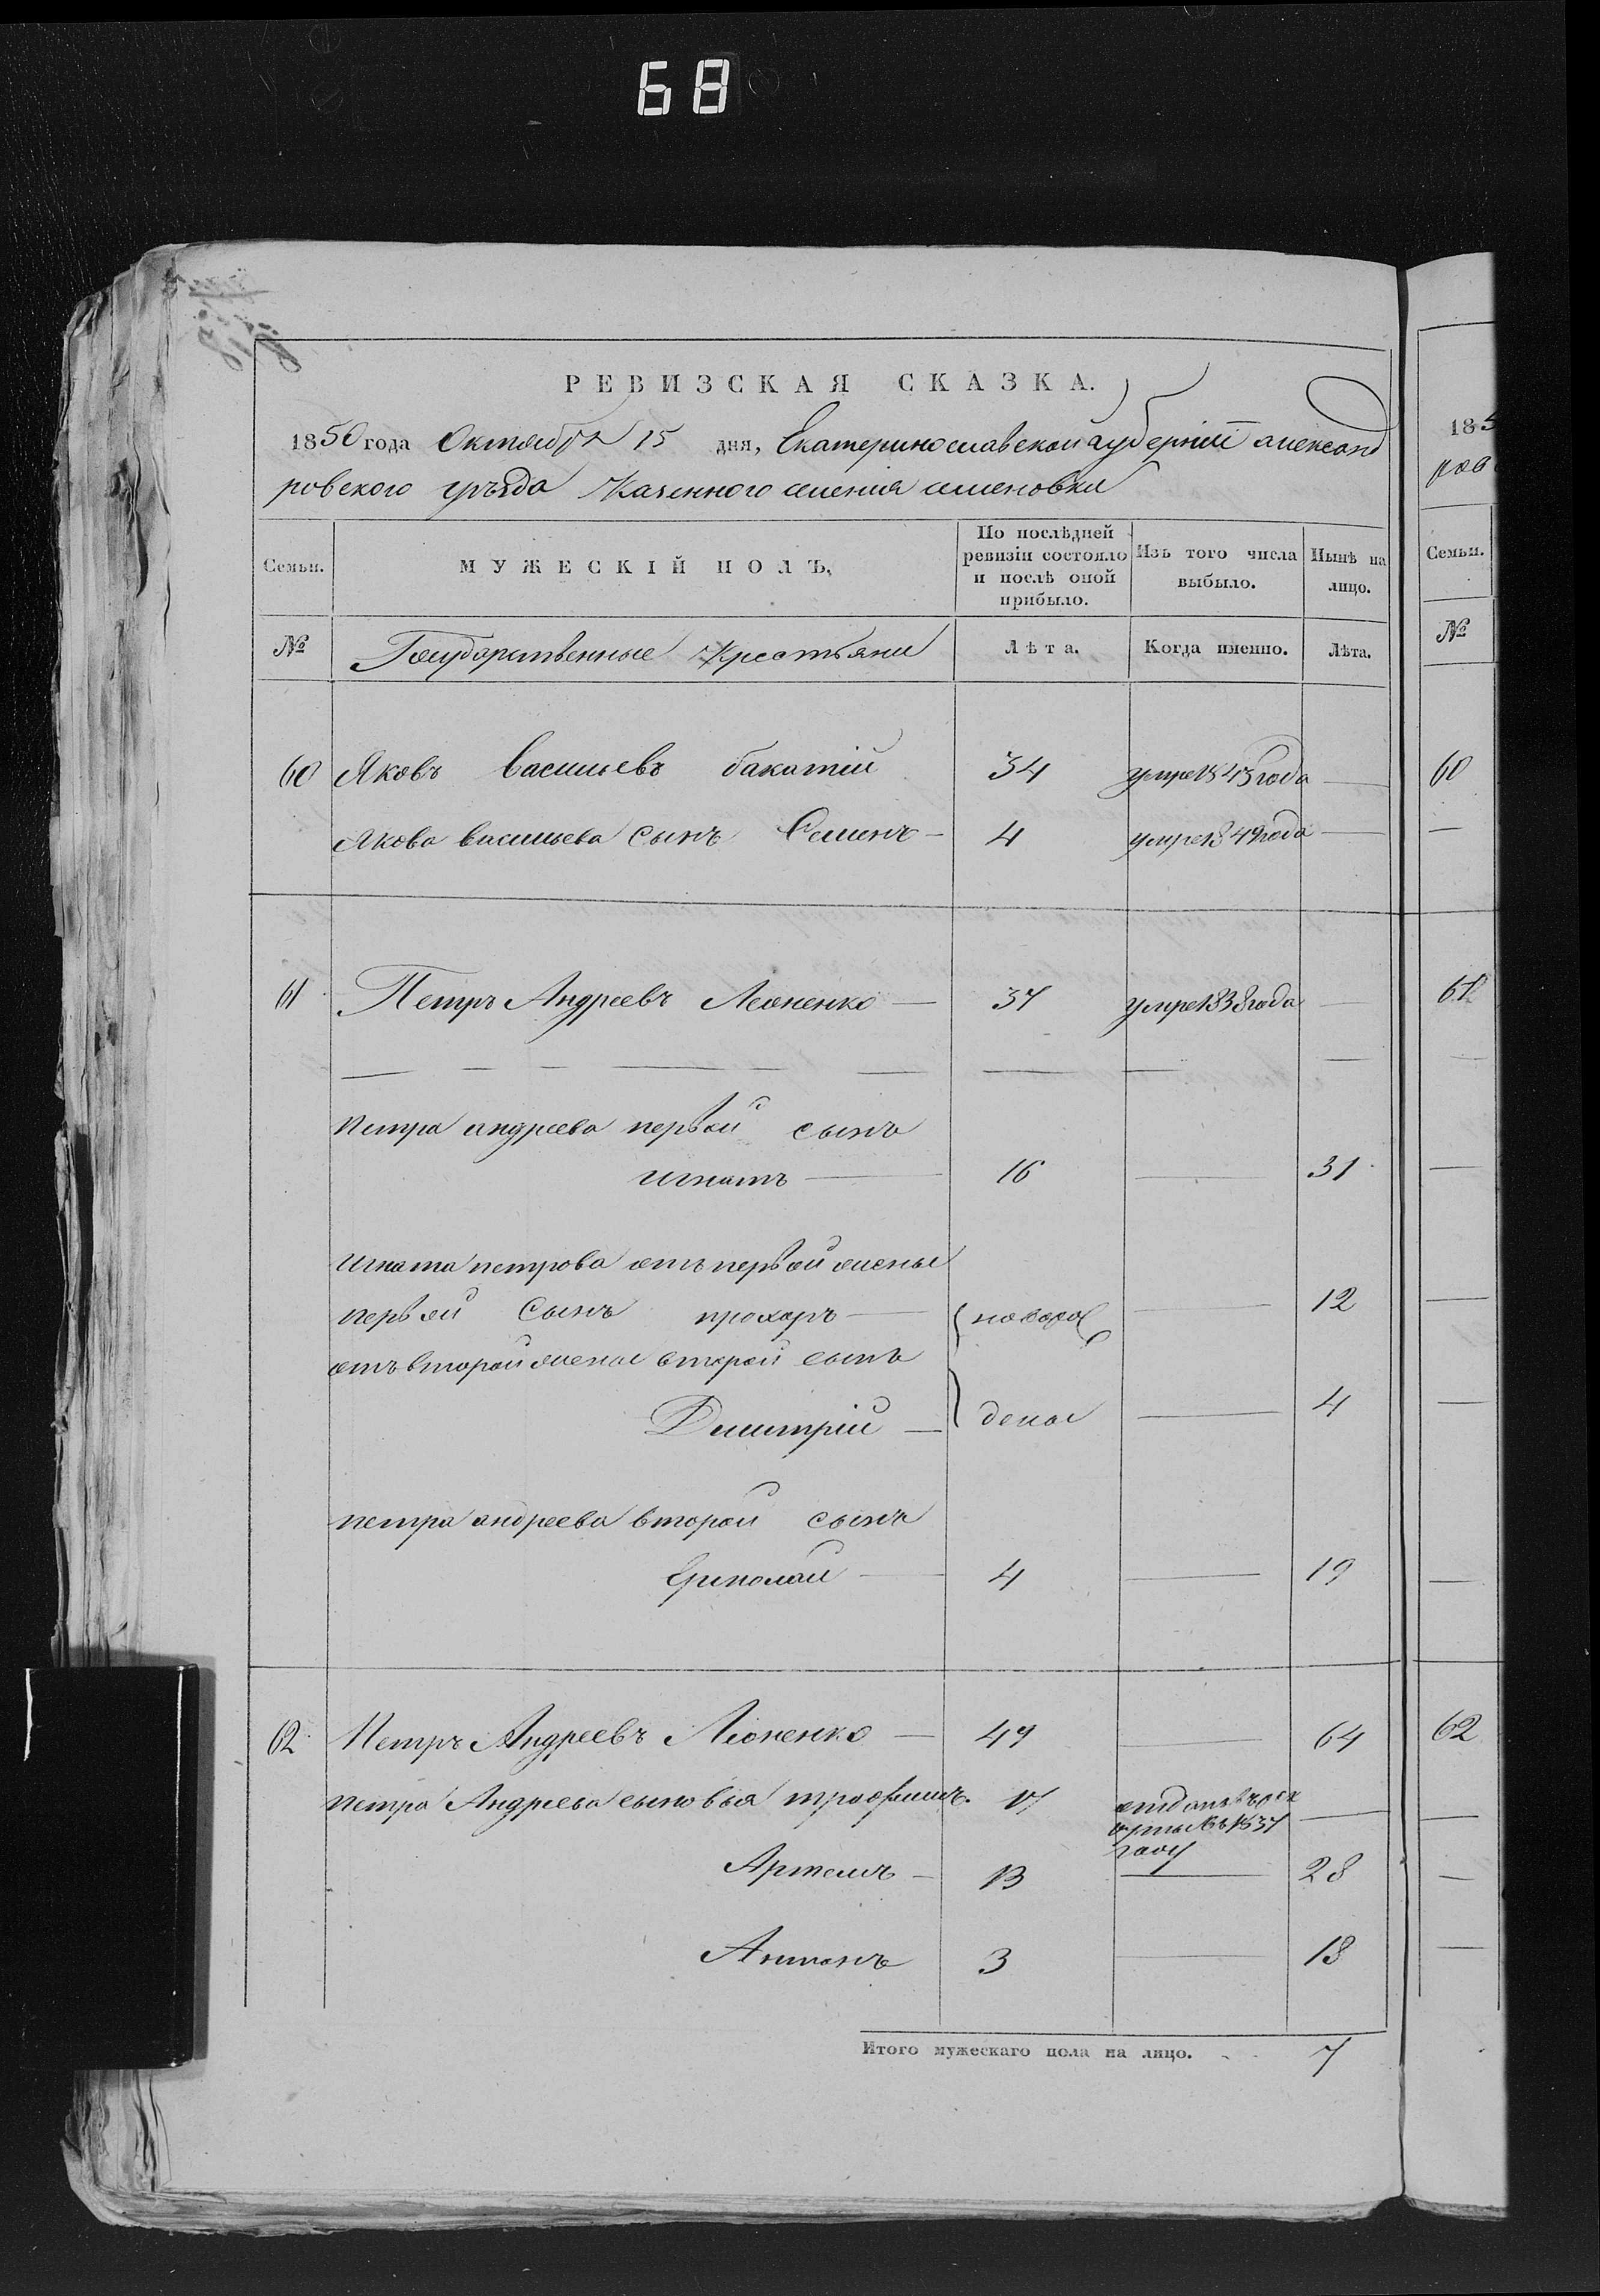 68
РЕВИЗСКАЯ СКАЗКА.
1850 года Октября 15 дня, Екатеринославской губернiи александ
ровского уѣзда Казенного селения семеновки
Семьи.
МУЖЕСКІЙ ПОЛЪ,
По послѣдней ревизіи состояло и послѣ оной прибыло.
Изъ того числа выбыло.
Нынѣ на лицо.
№
Государственные Крестьяни
Лѣта.
Когда именно.
Лѣта.
60 Яковъ Васильевъ бакатій 34 умре 1843 года —
Якова васильева сынъ Семенъ — 4 умре 1849 года —
61 Петръ Андреевъ Леоненко — 37 умре 1838 года —
Петра андреева первой сынъ
Игнатъ — 16 — 31
Игната петрова отъ первой жены
первой сынъ прохоръ — новорож — 12
отъ второй жены второй сынъ
Дмитрій — дены — 4
петра андреева второй сынъ
Ермолай — 4 — 19
62 Петръ Андреевъ Леоненко — 49 64
петра Андреева сыновья трофимъ. 17 отданъ въ рек
руты въ 1837 —
году
Артемъ — 13 — 28
Антонъ 3 — 18
Итого мужескаго пола на лицо. 7
185
ров
Семьи.
№
60
61
62